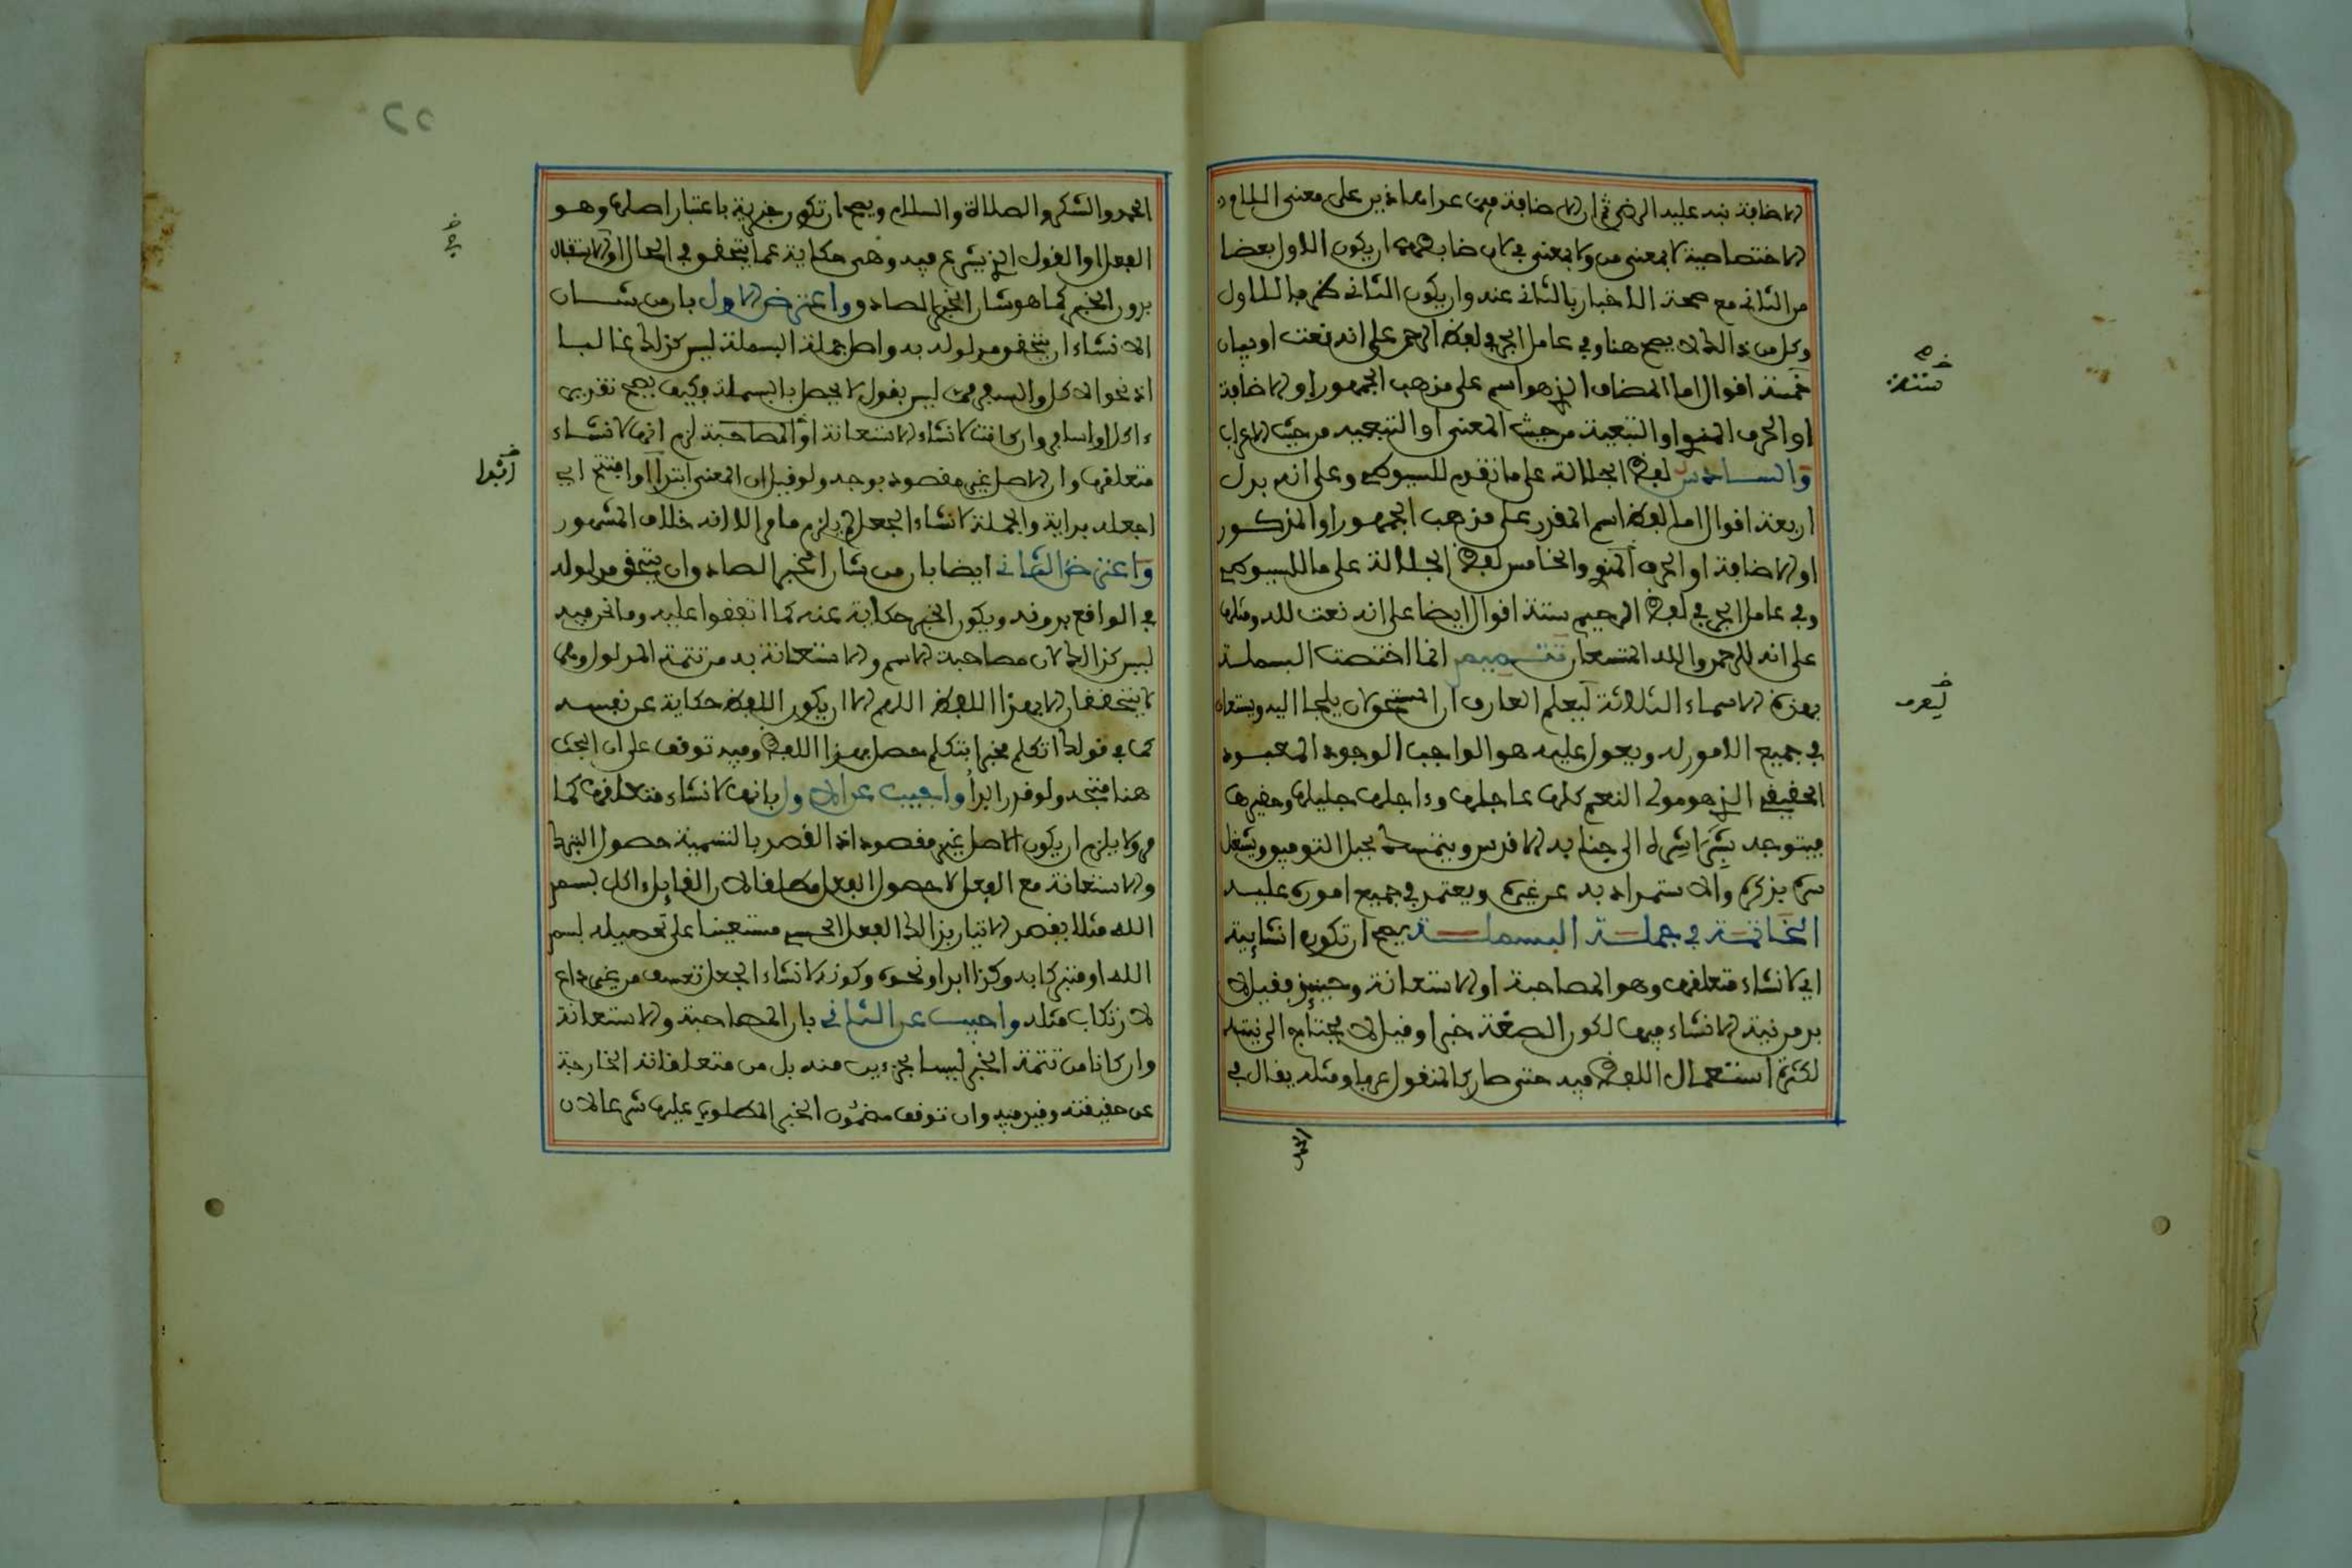 الاضافة نبه عليه الرضي ثم ان الاضافة فيمن عدا هاذين على معنى اللام
الاختصاصية لا بمعنى من ولا بمعنى في لان ضابط ان يكون الاول بعضا
من الثاني مع صحة الاخبار بالثاني عنه وان يكون الثاني ظرفا للاول
وكل من ذالك لا يصح هنا وفي عامل الجر في لفظ الرحمن على انه نعت او بيان
خمسة اقوال اما المضاف الذي هو اسم على مذهب الجمهور او الاضافة
او الحرف المنوي او التبعية من حيث المعنى او التبعية من حيث الاعراب
والسادس لفظ الجلالة على ما تقدم للسيوطي وعلى انه بدل
اربعة اقوال اما لفظ اسم المقدر على مذهب الجمهور او المذكور
او الاضافة او الحرف المنوي والخامس لفظ الجلالة على ما للسيوطي
وفي عامل الجر في لفظ الرحيم ستة اقوال ايضا على انه نعت لله ومثلها
على انه للرحمن والله المستعان تتميم انما اختصت البسملة
بهذه الاسماء الثلاثة ليعلم العارف ان المستحق لان يلجا اليه ويستعان
في جميع الامور له ويعول عليه هو الواجب الوجود المعبود
الحقيقي الذي هو مولى النعم كلها عاجلها وءاجلها جليلها وحقيرها
فيتوجه بشراشره الى جنابه الاقدس ويتمسك بحبل التوفيق ويشغل
سره بذكره والاستمداد به عن غيره ويعتمد في جميع اموره عليه
الخاتمة في جملة البسملة يصح ان تكون انشاءية
اي لانشاء متعلقها وهو المصاحبة او الاستعانة وحينئذ فقيل لا
بد من نية الانشاء فيها لكون الصيغة خبرا وقيل لا يحتاج الى نيته
لكثرة استعمال اللفظ فيه حتى صار كالمنقول عرفا ومثله يقال في
الحمد
ستة
ليعرف
الحمد والشكر والصلاة والسلام ويصح ان تكون خبرية باعتبار اصلها وهو
الفعل او القول الذي يشرع فيه وهي حكاية عما يتحقق في الحال او الاستقبال
بدون الخبر كما هو شان الخبر الصادق واعترض الاول بان من شان
الانشاء ان يتحقق مدلوله به واصل جملة البسملة ليس كذلك غالبا
اذ نحو الاكل والسفر مما ليس بقول لا يحصل بالبسملة وكيف يصح تقدير
ءاكل او اسافر وان كانت لانشاء الاستعانة او المصاحبة لزم انها لانشاء
متعلقها وان الاصل غير مقصود بوجه ولو قيل ان المعنى ابتدا او افتتح اي
اجعله بداية والجملة لانشاء الجعل لم يلزم ما مر الا انه خلاف المشهور
واعترض الثاني ايضا بان من شان الخبر الصادق ان يتحقق مدلوله
في الواقع بدونه ويكون الخبر حكاية عنه كما اتفقوا عليه وما نحن فيه
ليس كذالك لان مصاحبة الاسم والاستعانة به من تتمة المدلول وهما
لا يتحققان الا بهذا اللفظ اللهم الا ان يكون اللفظ حكاية عن نفسه
كما في قولك اتكلم مخبرا بتكلم حصل بهذا اللفظ وفيه توقف على ان البحث
هنا متجه ولو قدر ابدا واجيب عن الاول بانها لانشاء متعلقها كما
مر ولا يلزم ان يكون الاصل غير مقصود اذ القصد بالتسمية حصول التبرك
والاستعانة مع الفعل لا حصول الفعل مطلقا لان القايل ءاكل بسم
الله مثلا يقصد الاتيان بذالك الفعل الحسي مستعينا على تحصيله بسم
الله او متبركا به وكذا ابدا ونحوه وكونه لانشاء الجعل تعسف من غير داع
لارتكاب مثله واجيب عن الثاني بان المصاحبة والاستعانة
وان كانا من تتمة الخبر ليسا بجزءين منه بل من متعلقاته الخارجة
عن حقيقته وقيد فيه وان توقف مضمون الخبر المطلوب عليها شرعا لان
في
ابتدا